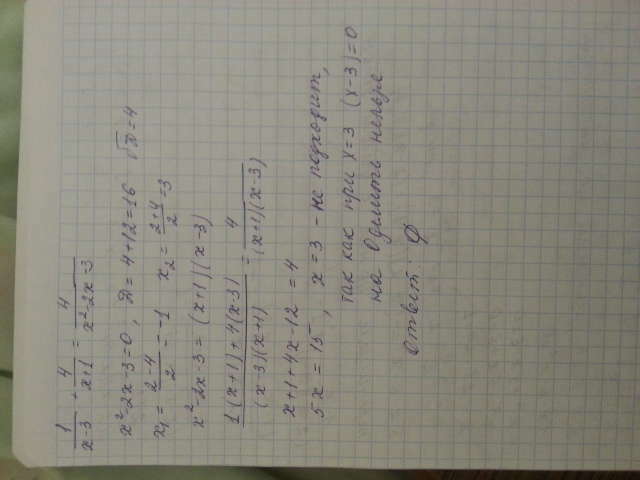 1/(x-3) + 4/(x+1) = 4/(x²-2x-3)
x²-2x-3=0, D=4+12=16 √D=4
x₁ = (2-4)/2 = -1 x₂ = (2+4)/2 = 3
x²-2x-3 = (x+1)(x-3)
(1(x+1)+4(x-3))/((x-3)(x+1)) = 4/((x+1)(x-3))
x+1+4x-12 = 4
5x = 15, x=3 - не подходит,
так как при x=3 (x-3)=0
на 0 делить нельзя
Ответ: ∅